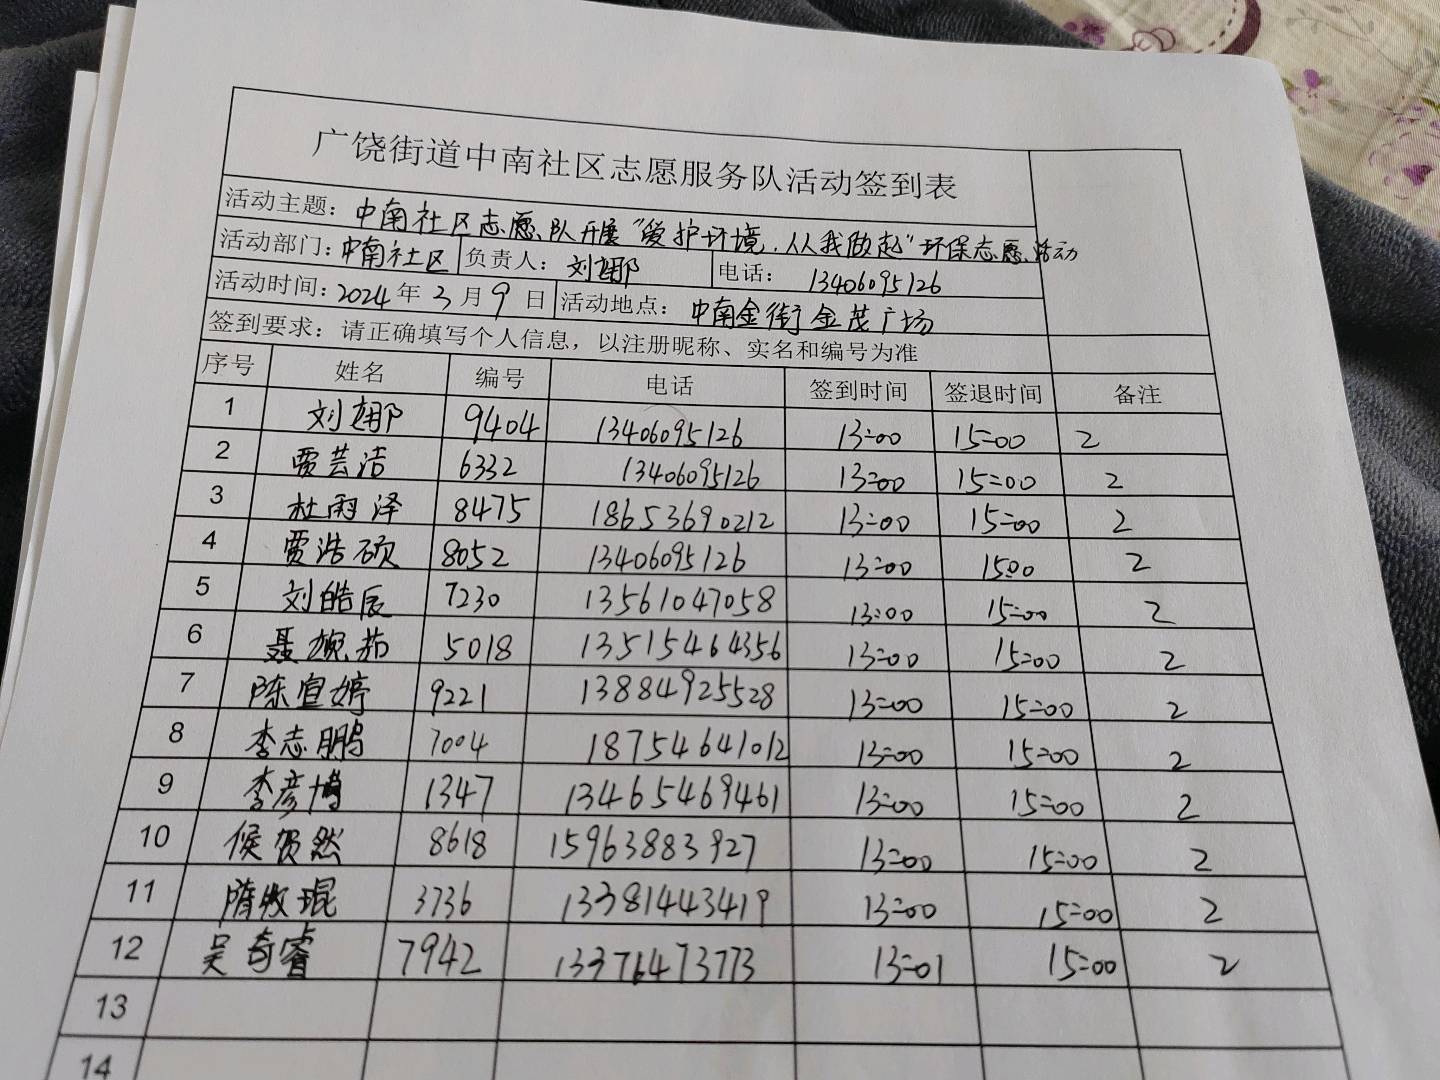 广饶街道中南社区志愿服务队活动签到表
活动主题：中南社区志愿队开展"爱护环境.从我做起"环保志愿活动
活动部门：中南社区 负责人：刘娜 电话：13406095126
活动时间：2024年3月9日 活动地点：中南金街金茂广场
签到要求：请正确填写个人信息，以注册昵称、实名和编号为准
序号 姓名 编号 电话 签到时间 签退时间 备注
1 刘娜 9404 13406095126 13:00 15:00 2
2 贾芸洁 6332 13406095126 13:00 15:00 2
3 杜雨泽 8475 18653690212 13:00 15:00 2
4 贾浩硕 8052 13406095126 13:00 15:00 2
5 刘皓辰 7230 13561047058 13:00 15:00 2
6 聂婉茹 5018 13515464356 13:00 15:00 2
7 陈宣婷 9221 13884925528 13:00 15:00 2
8 李志鹏 7004 18754641012 13:00 15:00 2
9 李彦博 1347 13465469461 13:00 15:00 2
10 候贺然 8618 15963883927 13:00 15:00 2
11 隋 琨 3736 13381443419 13:00 15:00 2
12 吴奇睿 7942 13376473773 13:01 15:00 2
13
14